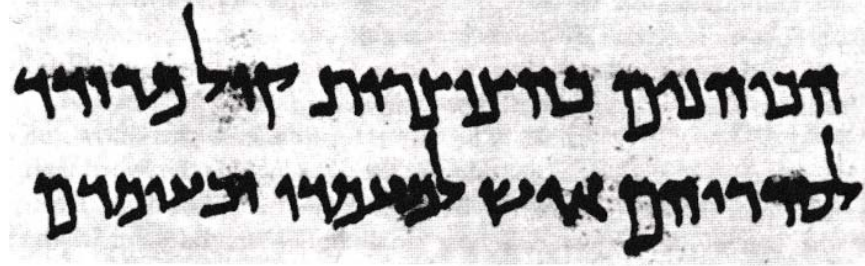 הכוהנים בחצוצרות קול מרודד
לסדריהם איש למעמדו ובעומדם